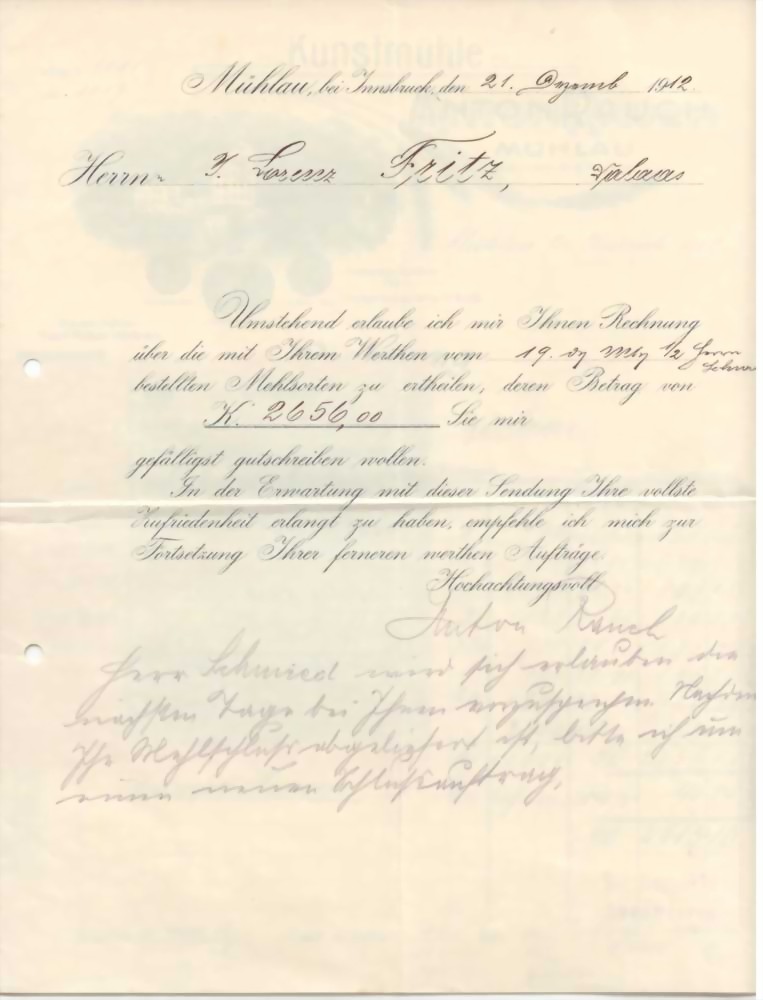 Kunstmühle
MÜHLAU
Mühlau, bei Innsbruck, den 21. Dezemb 1912.
Herrn J. Lorenz Fritz, Dalaas
Umstehend erlaube ich mir Ihnen Rechnung
über die mit Ihrem Werthen vom 19. Herrn
bestellten Mehlsorten zu ertheilen, deren Betrag von
K. 2656,00 Sie mir
gefälligst gutschreiben wollen.
In der Erwartung mit dieser Sendung Ihre vollste
Zufriedenheit erlangt zu haben, empfehle ich mich zur
Fortsetzung Ihrer ferneren werthen Aufträge.
Hochachtungsvoll
Anton Rauch
Herr Schmied wird sich erlauben die
nächsten Tage bei Ihnen vorzusprechen. Nachdem
Ihr Mehlschluss abgeliefert ist, bitte ich um
einen neuen Schlussauftrag.